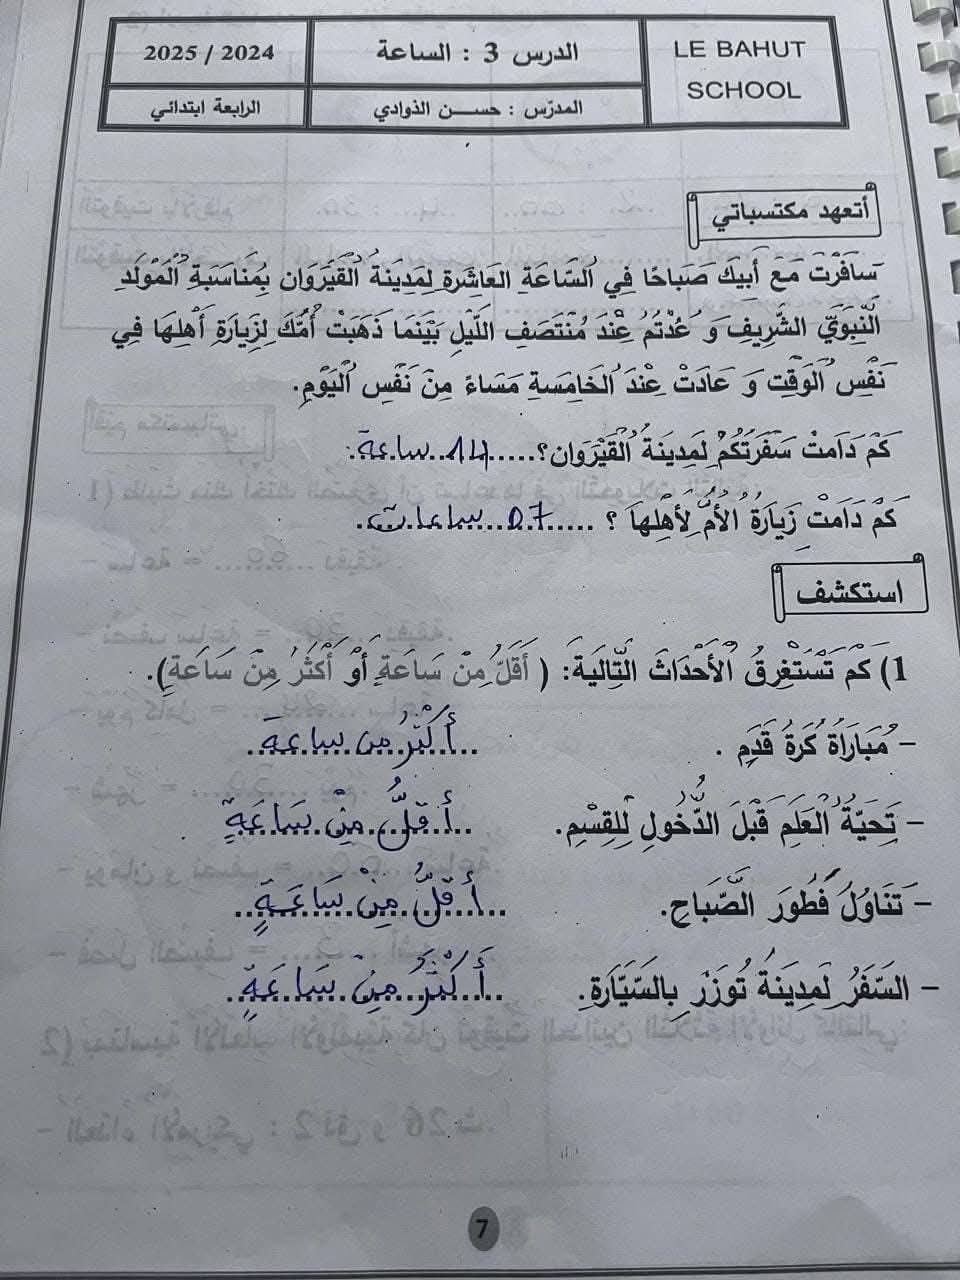 LE BAHUT SCHOOL
الدرس 3 : الساعة
2025 / 2024
المدرّس : حسن الذوادي
الرابعة ابتدائي
أتعهد مكتسباتي
سَافَرْتَ مَعَ أَبِيكَ صَبَاحًا فِي السَّاعَةِ العَاشِرَةِ لِمَدِينَةِ القَيْرَوَانِ بِمُنَاسَبَةِ الْمَوْلَدِ
النَّبَوِيِّ الشَّرِيفِ وَ عُدْتُمْ عِنْدَ مُنْتَصَفِ اللَّيْلِ بَيْنَمَا ذَهَبَتْ أُمُّكَ لِزِيَارَةِ أَهْلِهَا فِي
نَفْسِ الْوَقْتِ وَ عَادَتْ عِنْدَ الْخَامِسَةِ مَسَاءً مِنْ نَفْسِ الْيَوْمِ.
كَمْ دَامَتْ سَفْرَتُكُمْ لِمَدِينَةِ الْقَيْرَوَانِ؟.....14...ساعة.
كَمْ دَامَتْ زِيَارَةُ الأُمِّ لِأَهْلِهَا ؟ .....07...ساعات.
استكشف
1) كَمْ تَسْتَغْرِقُ الأَحْدَاثُ التَّالِيَةَ: ( أَقَلُّ مِنْ سَاعَةٍ أَوْ أَكْثَرُ مِنْ سَاعَةٍ).
– مُبَارَاةُ كُرَةُ قَدَمٍ . ...أكثرُ من ساعة..
– تَحِيَّةُ الْعَلَمِ قَبْلَ الدُّخُولِ لِلْقِسْمِ. ...أقلُّ مِنْ سَاعَةٍ
– تَنَاوُلُ فُطُورَ الصَّبَاحِ. ...أقلُّ مِنْ سَاعَةٍ..
– السَّفَرُ لِمَدِينَةُ تُوزَرْ بِالسَّيَّارَةِ. ...أَكثَرُ مِنْ سَاعَةٍ..
7